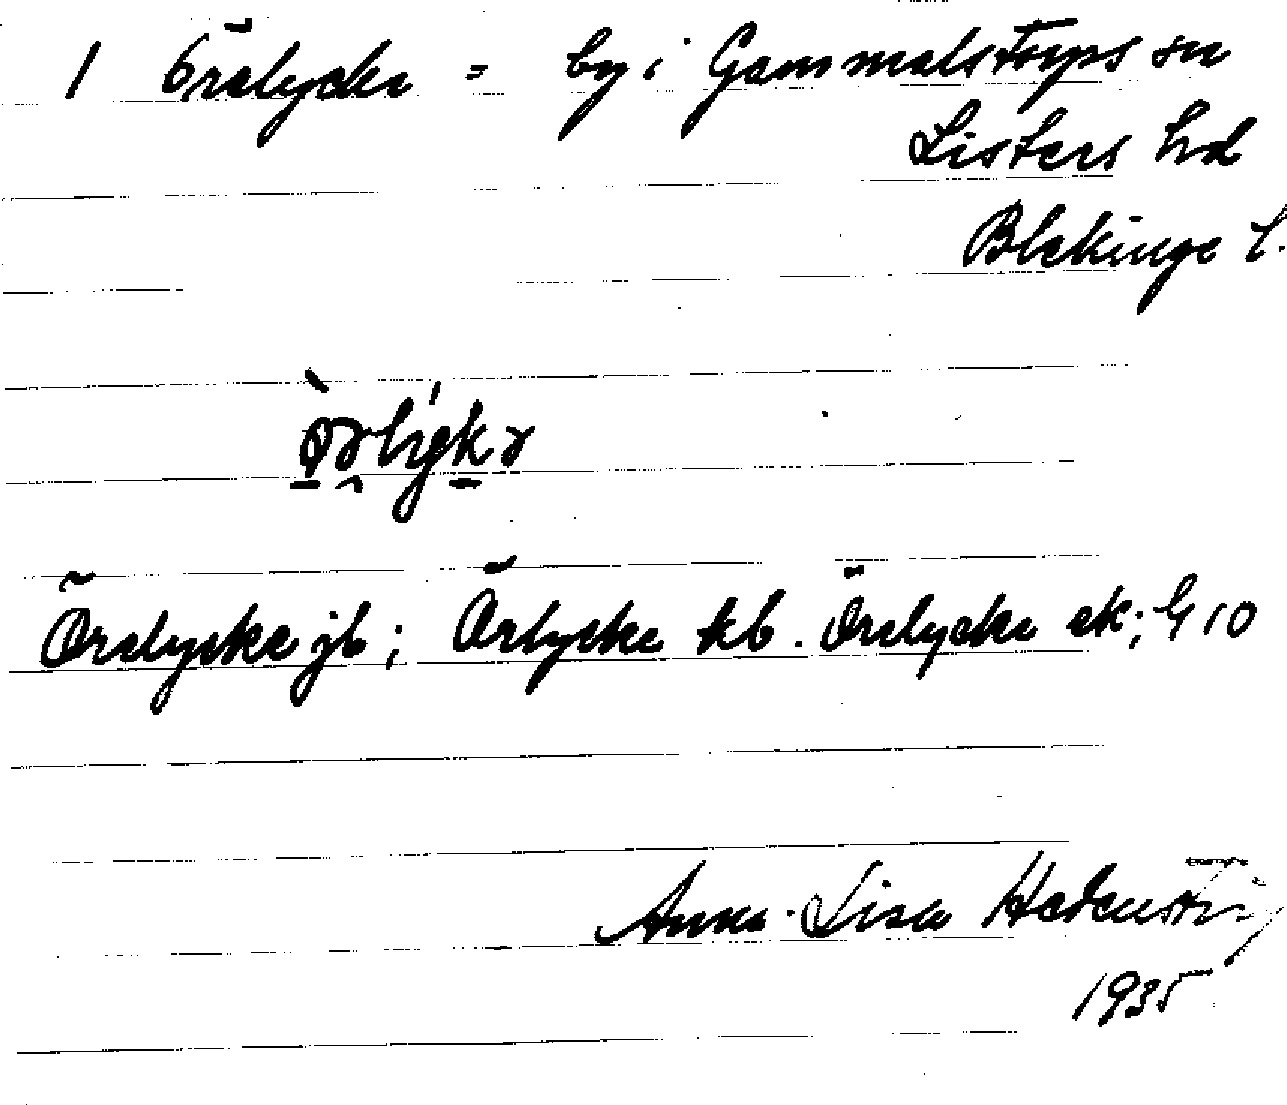 1 Öralycke = by i Gammalstorps sn
Listers hd
Blekinge l.
Öralycke jb; Örlycke kb. Öralycke ek; G 10
Anna-Lisa
1935